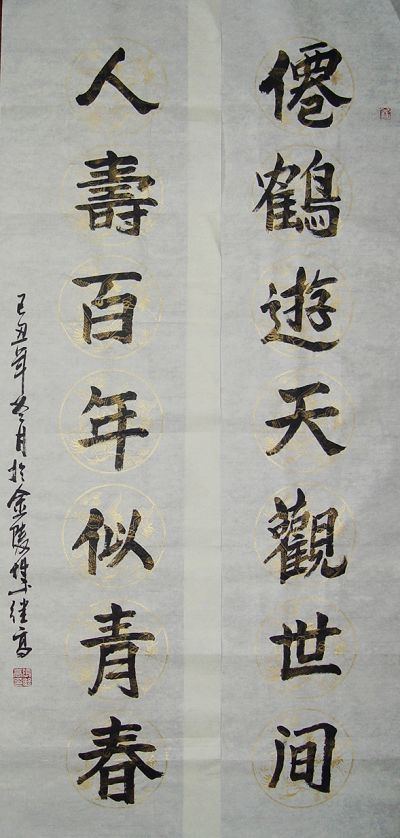 僊鶴遊天觀世间
人壽百年似青春
己丑年冬月於金陵